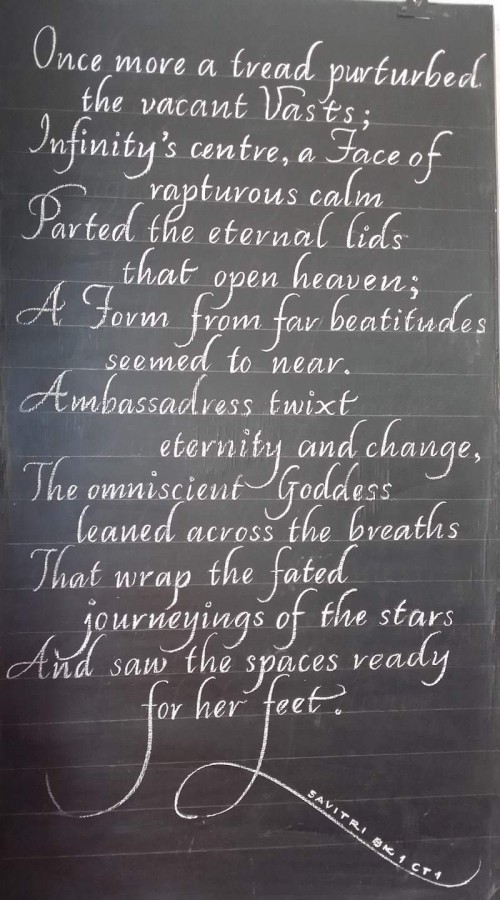 Once more a tread purturbed
the vacant Vasts;
Infinity's centre, a Face of
rapturous calm
Parted the eternal lids
that open heaven;
A Form from far beatitudes
seemed to near.
Ambassadress twixt
eternity and change,
The omniscient Goddess
leaned across the breaths
That wrap the fated
journeyings of the stars
And saw the spaces ready
for her feet.
SAVITRI BK.1 CT1